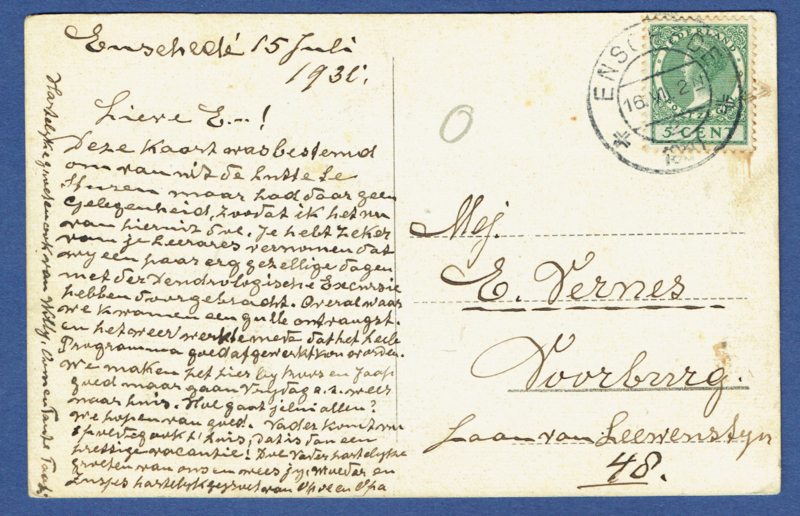 Enschedé 15 Juli
1931.
Lieve E..!
Deze kaart was bestemd
om van uit de hutte te
sturen maar had daar geen
gelegenheid, zoodat ik het nu
van hieruit doe. Je hebt zeker
van je leerares vernomen dat
wij een paar erg gezellige dagen
met der Dendrologische Excursie
hebben doorgebracht. Overal waar
we kwamen een gulle ontvangst.
en het weer werkte mede dat het heele
Programma goed afgewerkt kon worden.
We maken het hier by Noors en Jaap
goed maar gaan Vrijdag a.s. weer
naar huis. Hoe gaat jelui allen?
We hopen van goed. Vader komt nu
ook t'huis, dat is dan een
prettige vacantie! Doe Vader hartelyke
groeten van ons en wees jy, Moeder en
Zusjes hartelyk gegroet van Opoe en Opa
Hartelijke groeten ook van Willy, Oom en Tante
ENSCHEDE
16.VII
NEDERLAND
5 CENT
0
Mej.
E. Vernes
Voorburg.
Laan van Leewenstyn
48.